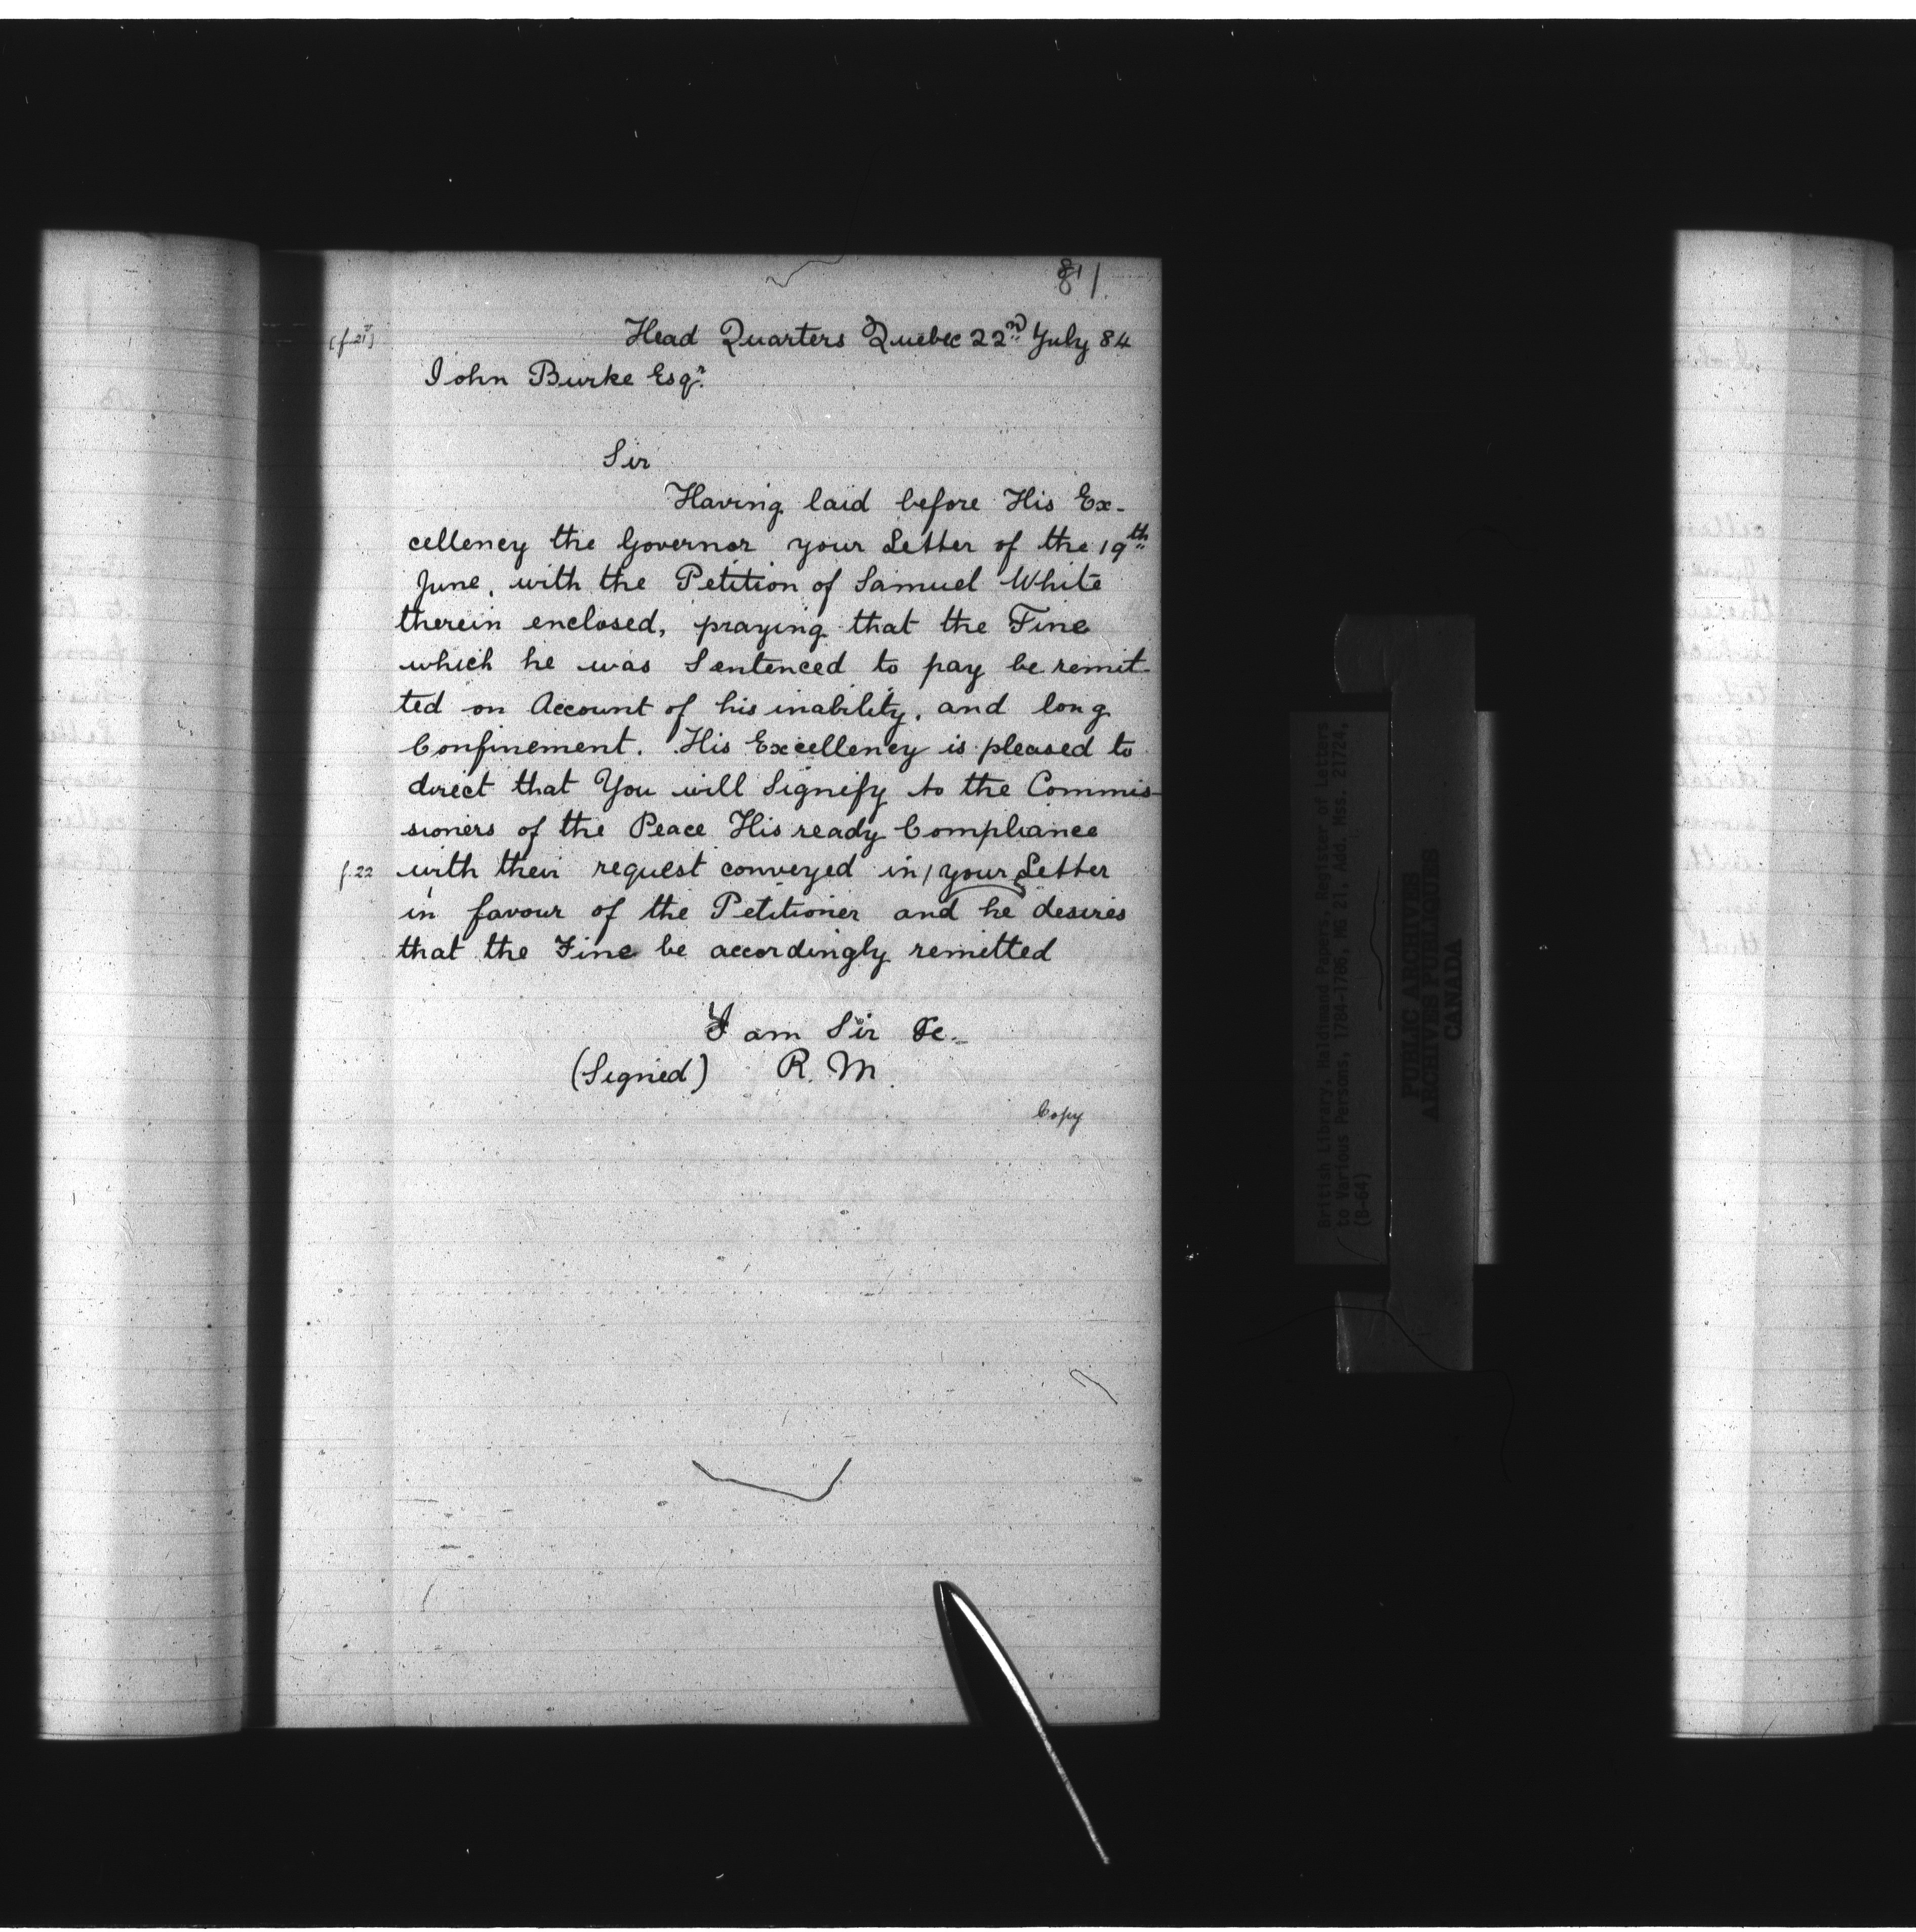 81
(f 21)
Head Quarters Quebec 22nd July 84
John Burke Esqr.
Sir
Having laid before His Ex-
cellency the Governor your Letter of the 19th
June, with the Petition of Samuel White
therein enclosed, praying that the Fine
which he was Sentenced to pay be remit-
ted on Account of his inability, and long
Confinement. His Excellency is pleased to
direct that You will Signify to the Commis-
sioners of the Peace His ready Compliance
f.22 with their request conveyed in/your Letter
in favour of the Petitioner and he desires
that the Fine be accordingly remitted
I am Sir &c.
(Signed) R. M.
Copy
British Library, Haldimand Papers, Register of Letters
to Various Persons, 1784-1786, MG 21, Add. Mss. 21724,
(B-64)
PUBLIC ARCHIVES
ARCHIVES PUBLIQUES
CANADA